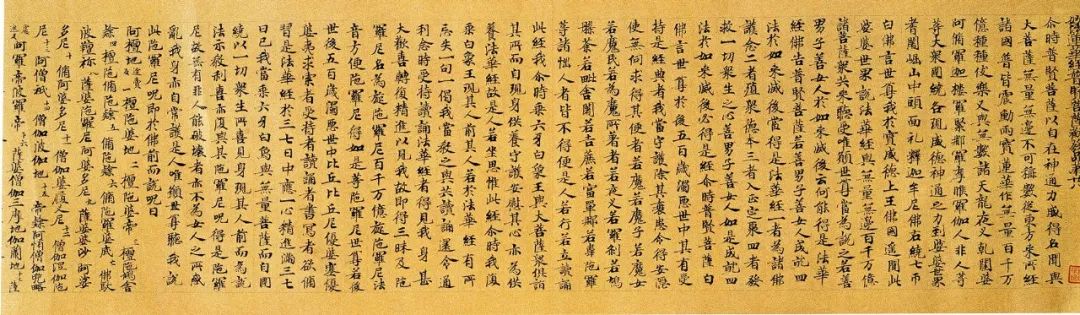 尒時普賢菩薩以自在神通力威德名聞與
大菩薩無量無邊不可稱數從東方來所經
諸國普皆震動雨寶蓮華作無量百千万
億種種伎樂又與無數諸天龍夜叉乹闥婆
阿脩羅迦樓羅緊那羅摩睺羅伽人非人等
大衆圍繞各現威德神通之力到娑婆世界
耆闍崛山中頭面礼釋迦牟尼佛右繞七帀
白佛言世尊我於寶威德上王佛國遥聞此
娑婆世界說法華經與無量無邊百千万億
諸菩薩衆共來聽受唯願世尊當為說之若善
男子善女人於如來滅後云何能得是法華
經佛告普賢菩薩若善男子善女人成就四
法於如來滅後當得是法華經一者為諸佛
護念二者殖衆德本三者入正定聚四者發
救一切衆生之心善男子善女人如是成就四
法於如來滅後必得是經尒時普賢菩薩白
佛言世尊於後五百歲濁惡世中其有受
持是經典者我當守護除其衰患令得安隱
使無伺求得其便者若魔若魔子若魔女
若魔民若為魔所著者若夜叉若羅剎若鳩
槃荼若毗舍闍若吉蔗若富單那若韋陁羅
等諸惱人者皆不得便是人若行若立讀誦
此經我尒時乘六牙白象王與大菩薩衆俱詣
其所而自現身供養守護安慰其心亦為供
養法華經故是人若坐思惟此經尒時我復
乘白象王現其人前其人若於法華經有所
忘失一句一偈我當教之與共讀誦還令通
利尒時受持讀誦法華經者得見我身甚
大歡喜轉復精進以見我故即得三昧及陁
羅尼名為旋陁羅尼百千万億旋陁羅尼法
音方便陁羅尼得如是等陁羅尼世尊若後
世後五百歲濁惡世中比丘比丘尼優婆塞優
婆夷求索者受持者讀誦者書寫者欲脩
習是法華經於三七日中應一心精進滿三七
日已我當乘六牙白象與無量菩薩而自圍
繞以一切衆生所喜見身現其人前而為說
法示教利喜亦復與其陁羅尼呪得是陁羅
尼故無有非人能破壞者亦不為女人之所惑
亂我身亦自常護是人唯願世尊聽我說
此陁羅尼呪即於佛前而說呪曰
阿檀地一 檀陁婆地二 檀陁婆帝三 檀陁鳩舍
隸四 檀陁脩陁隸五 脩陁隸六 脩陁羅婆底七 佛馱
波羶祢八 薩婆陁羅尼阿婆多尼九 薩婆婆沙阿婆
多尼十 脩阿婆多尼十一 僧伽婆履叉尼十二 僧伽涅伽陁
尼十三 阿僧祇十四 僧伽波伽地十五 帝隸阿惰僧伽兜略
阿羅帝波羅帝十六 薩婆僧伽三摩地伽蘭地十七 薩